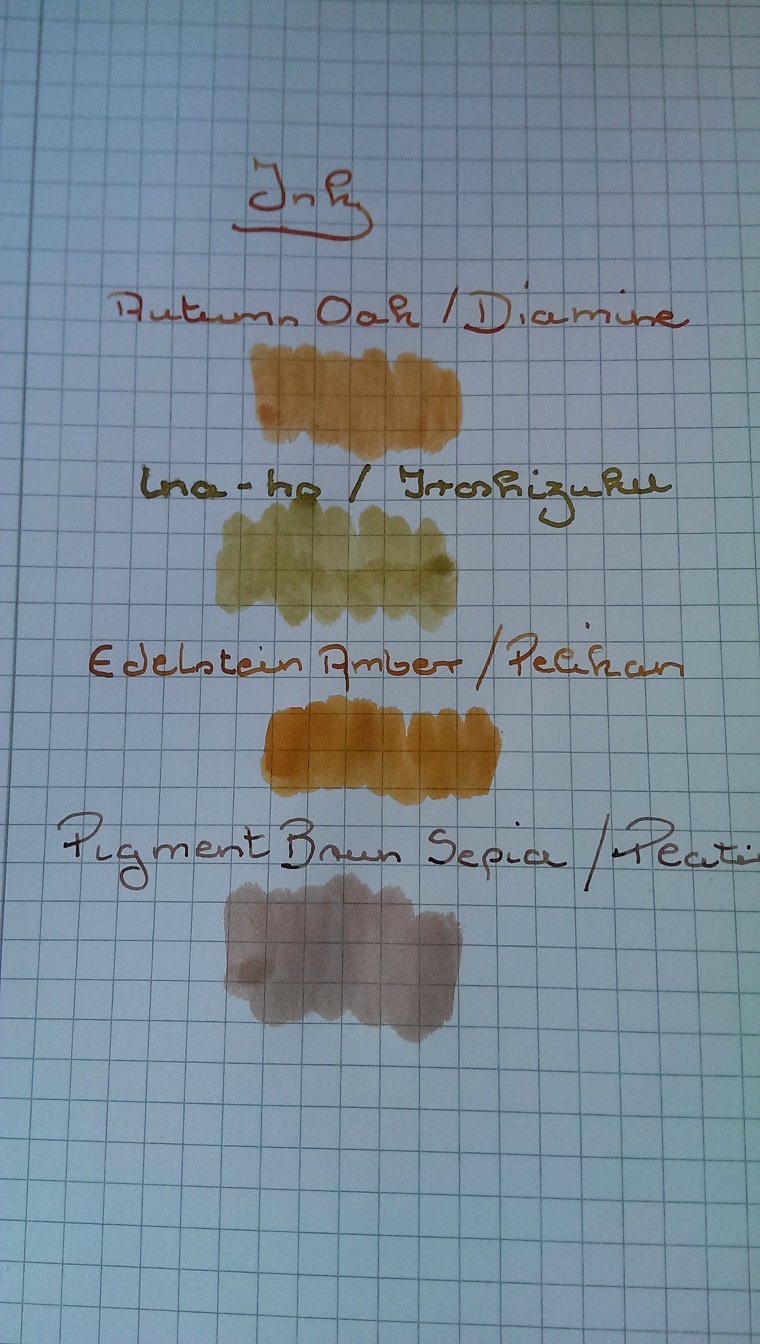 Ink
Autumn Oak / Diamine
Ina-ho / Iroshizuku
Edelstein Amber / Pelikan
Pigment Brun Sepia /